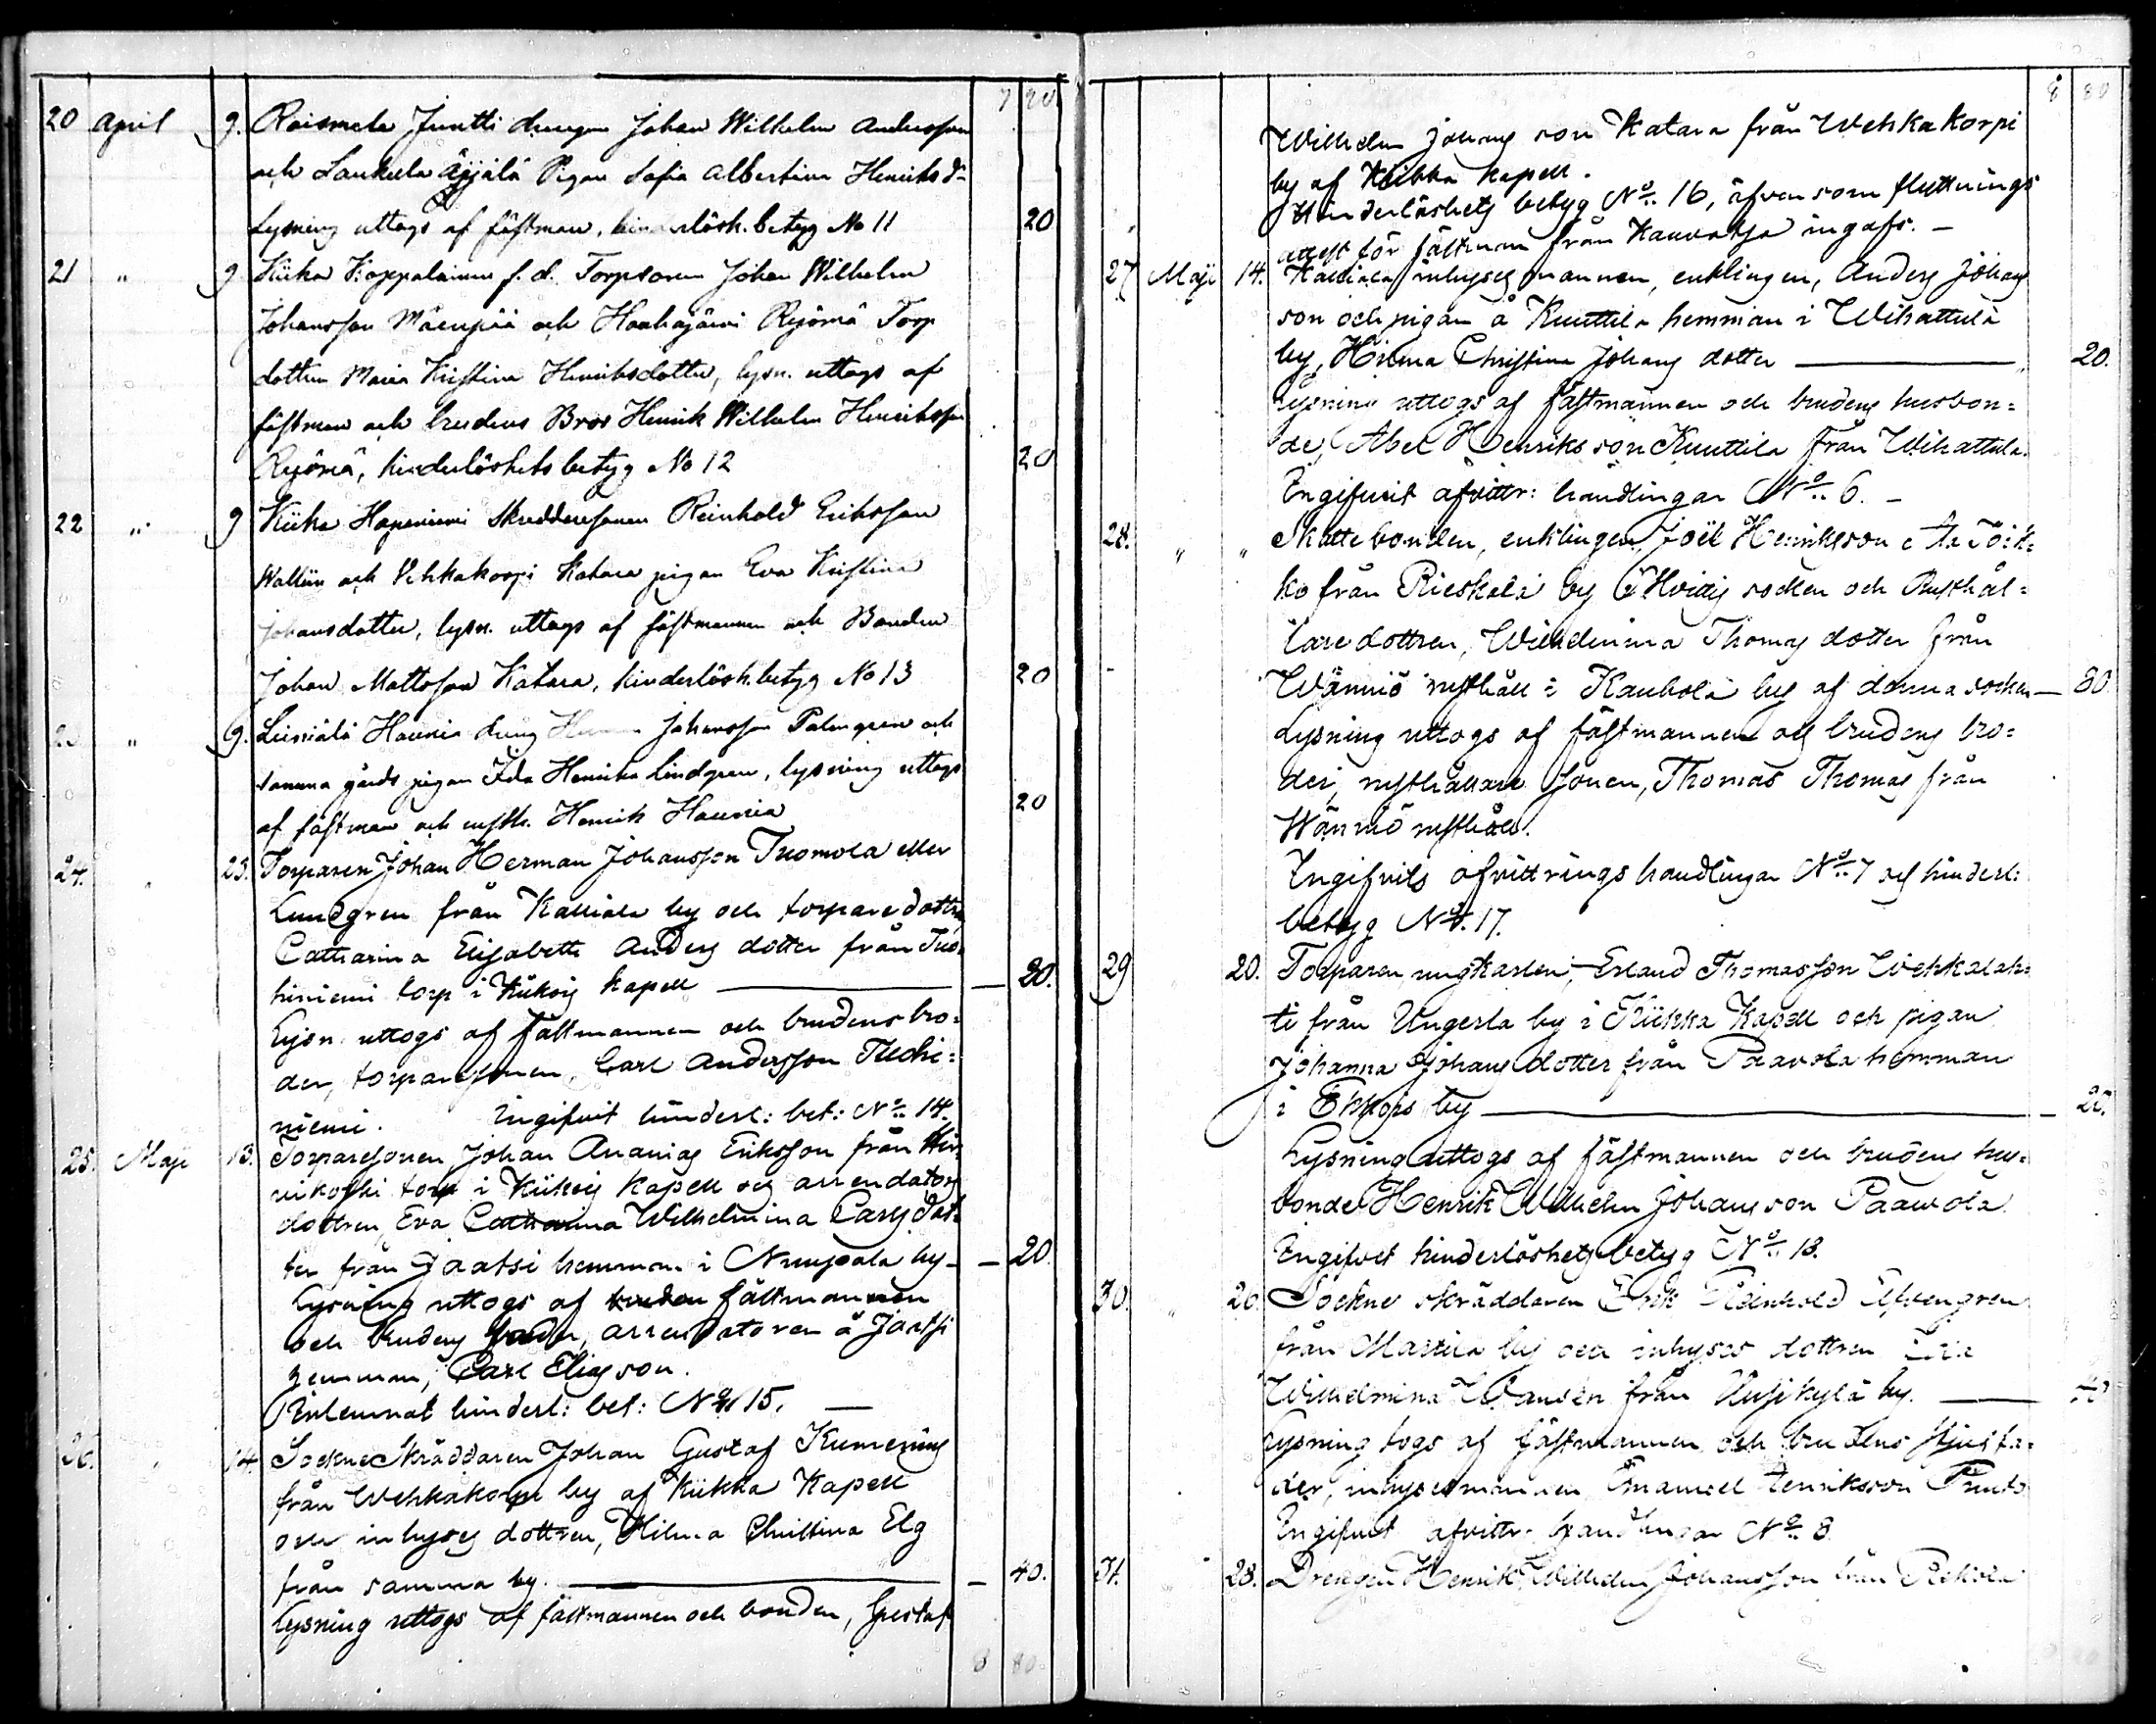 7 20
20 April 9. Raismala Juntti drengen Johan Wilhelm Andersson
och Laukula Äijälä Pigan Sofia Albertina Henriksdr
Lysning uttogs af fästman, hinderlösh. betyg No 11 20
21 " 9 Kiika Koppalainen f. d. Torpsonen Johan Wilhelm
Johansson Mäenpää och Haahajärvi Rejömä Torp
dottren Maria Kristina Henriksdotter, lysn. uttogs af
fästman och brudens Bror Henrik Wilhelm Henriksson
Rejömä, hinderlöshets betyg No 12 20
22 " 9 Kiika Haponiemi Skreddaresonen Reinhold Eriksson
Wallin och Vehkakorpi Katara pigan Eva Kristina
Johansdotter, lysn. uttogs af fästmannen och Bonden
Johan Mattsson Katara, hinderlösh. betyg No 13 20
" 9. Haunia dreng Johansson Palmgren och
samma gårds pigan Ida Henrika Lindgren, lysning uttogs
af fästman och rusth. Henrik Haunia 20
24. 23. Torparen Johan Herman Johansson Tuomola eller
Lundgren från Kalliala by och torparedottren
Catharina Elisabeth Anders dotter från Tuo-
hiniemi torp i Kiikois Kapell — 20.
Lysn. uttogs af fästmannen och brudens bro=
der, torparesonen, Carl Andersson Tuohi=
niemi. Ingifvit hinderl: bet: No 14.
25. Maji 13. Torparesonen Johan Ananias Eriksson från Hir-
vikoski torp i Kiikois Kapell och arrendators
dottren, Eva Catharina Wilhelmina Carls dot-
ter från Jaatsi hemman i Nuupala by — 20
Lysning uttogs af bruden fästmannen
och brudens fader, arrendatoren å Jaatsi
hemman, Carl Eliasson.
Inlemnat hinderl: bet: No 15. —
26. 14. SockneSkräddaren Johan Gustaf Kumenius
från Wehkakorpi by af Kiikka Kapell
och inhyses dottren, Hilma Christina Elg
från samma by. — 40.
Lysning uttogs af fästmannen och bonden, Gustaf
8 80
8 80
Wilhelm Johansson Katara från Wehkakorpi
by af Kiikka Kapell.
Hinderlöshets betyg No 16, äfvensom flyttnings
attest för fästman från Kauvatsa ingafs. —
27 Maji 14. Kalliala inhyses mannen, enklingen, Anders Johans
son och pigan å Kuuttila hemman i Wihattula
by, Hilma Christina Johans dotter — 20.
Lysning uttogs af fästmannen och brudens husbon=
de, Abel Henriksson Kuuttila från Wihattula.
Ingifvit afvittr: handlingar No 6. —
28. " " Skattebonden, enklingen, Joël Henriksson
ko från Rieskala by i Hvittis socken och Rusthål=
lare dottren, Wilhelmina Thomas dotter från
Wänniö rusthåll i Kaukola by af denna socken — 80
Lysning uttogs af fästmannen och brudens bro=
der, rusthållare sonen, Thomas Thomas från
Wänniö rusthåll.
Ingifvits afvittrings handlingar No 7 och hinderl:
betyg No 17.
29 20. Torparen, ungkarlen, Erland Thomasson Wehkalah-
ti från Ungerla by i Kiikka Kapell och pigan
Johanna Johans dotter från Paavola hemman
i Ekkojs by — 20.
Lysning uttogs af fästmannen och brudens hus-
bonde Henrik Wilhelm Johansson Paavola
Ingifvet hinderlöshets betyg No 18.
30. " 26. Sockne skräddaren Erik Reinhold Elfvengren
från Marttila by och inhyses dottren
Wilhelmina från Uusikylä by. —
Lysning togs af fästmannen och brudens stjuffa-
der, inhysesmannen Emanuel Henriksson
Ingifvet afvittr. handlingar No 8.
31. 28. Drengen Henrik Wilhelm Johansson från